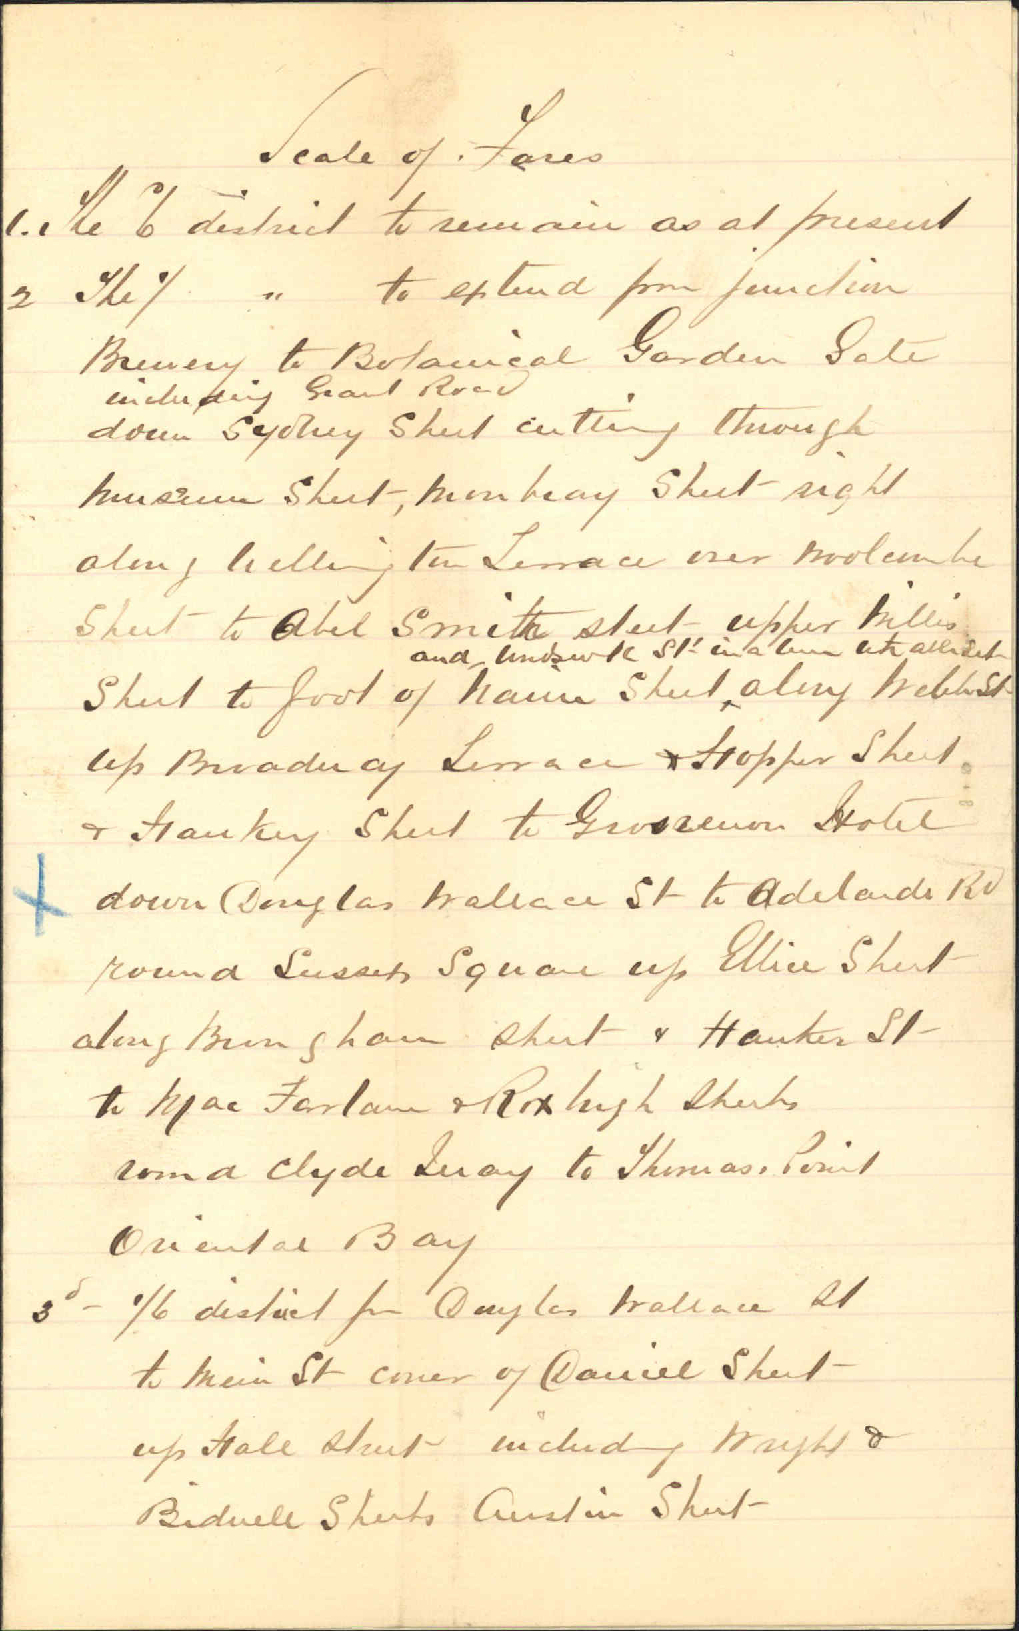 Scale of Fares
1. The 6d district to remain as at present
2 The 1/ " to extend from junction
Brewery to Botanical Garden Gate
including Grant Road
down Sydney Street cutting through
Museum Street, Mowbray Street right
along Wellington Terrace over Woolcombe
Street to Abel Smith street upper Willis
and St in a line with
Street to foot of Nairn Street, along Webb St
up Broadway Terrace & Hopper Street
& Hankey Street to Grosvenor Hotel
X down Douglas Wallace St to Adelaide Rd
round Sussex Square up Ellice Street
along Brougham street & Hawker St
to MacFarlane & Roxburgh Streets
round Clyde Quay to Thomas Point
Oriental Bay
3d - 1/6 district from Douglas Wallace St
to Mein St corner of Daniel Street
up Hall street including Wright &
Bidwell Streets Austin Street